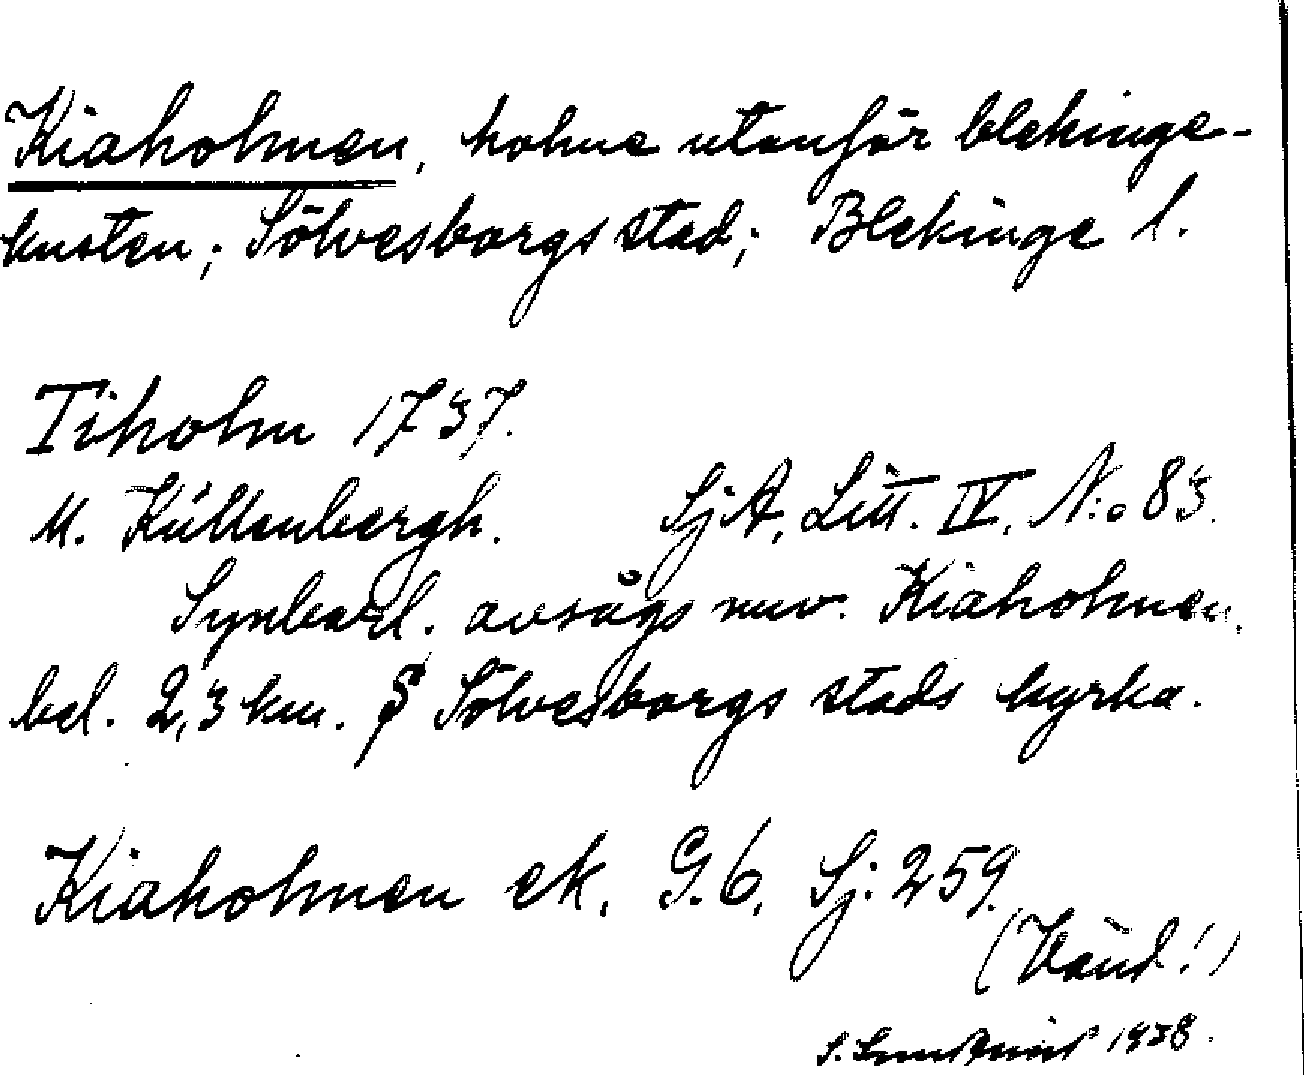 Kiaholmen, holme utanför blekinge-
kusten; Sölvesborgs stad; Blekinge l.
Tiholm 1737.
M. Küllenbergh. SjA, Litt. IV, N:o 83.
Synbarl. avsågs nuv. Kiaholmen,
bel. 2,3 km. S Sölvesborgs stads kyrka.
Kiaholmen ek. G.b, Sj: 259.
(Vänd!)
S. 1938.